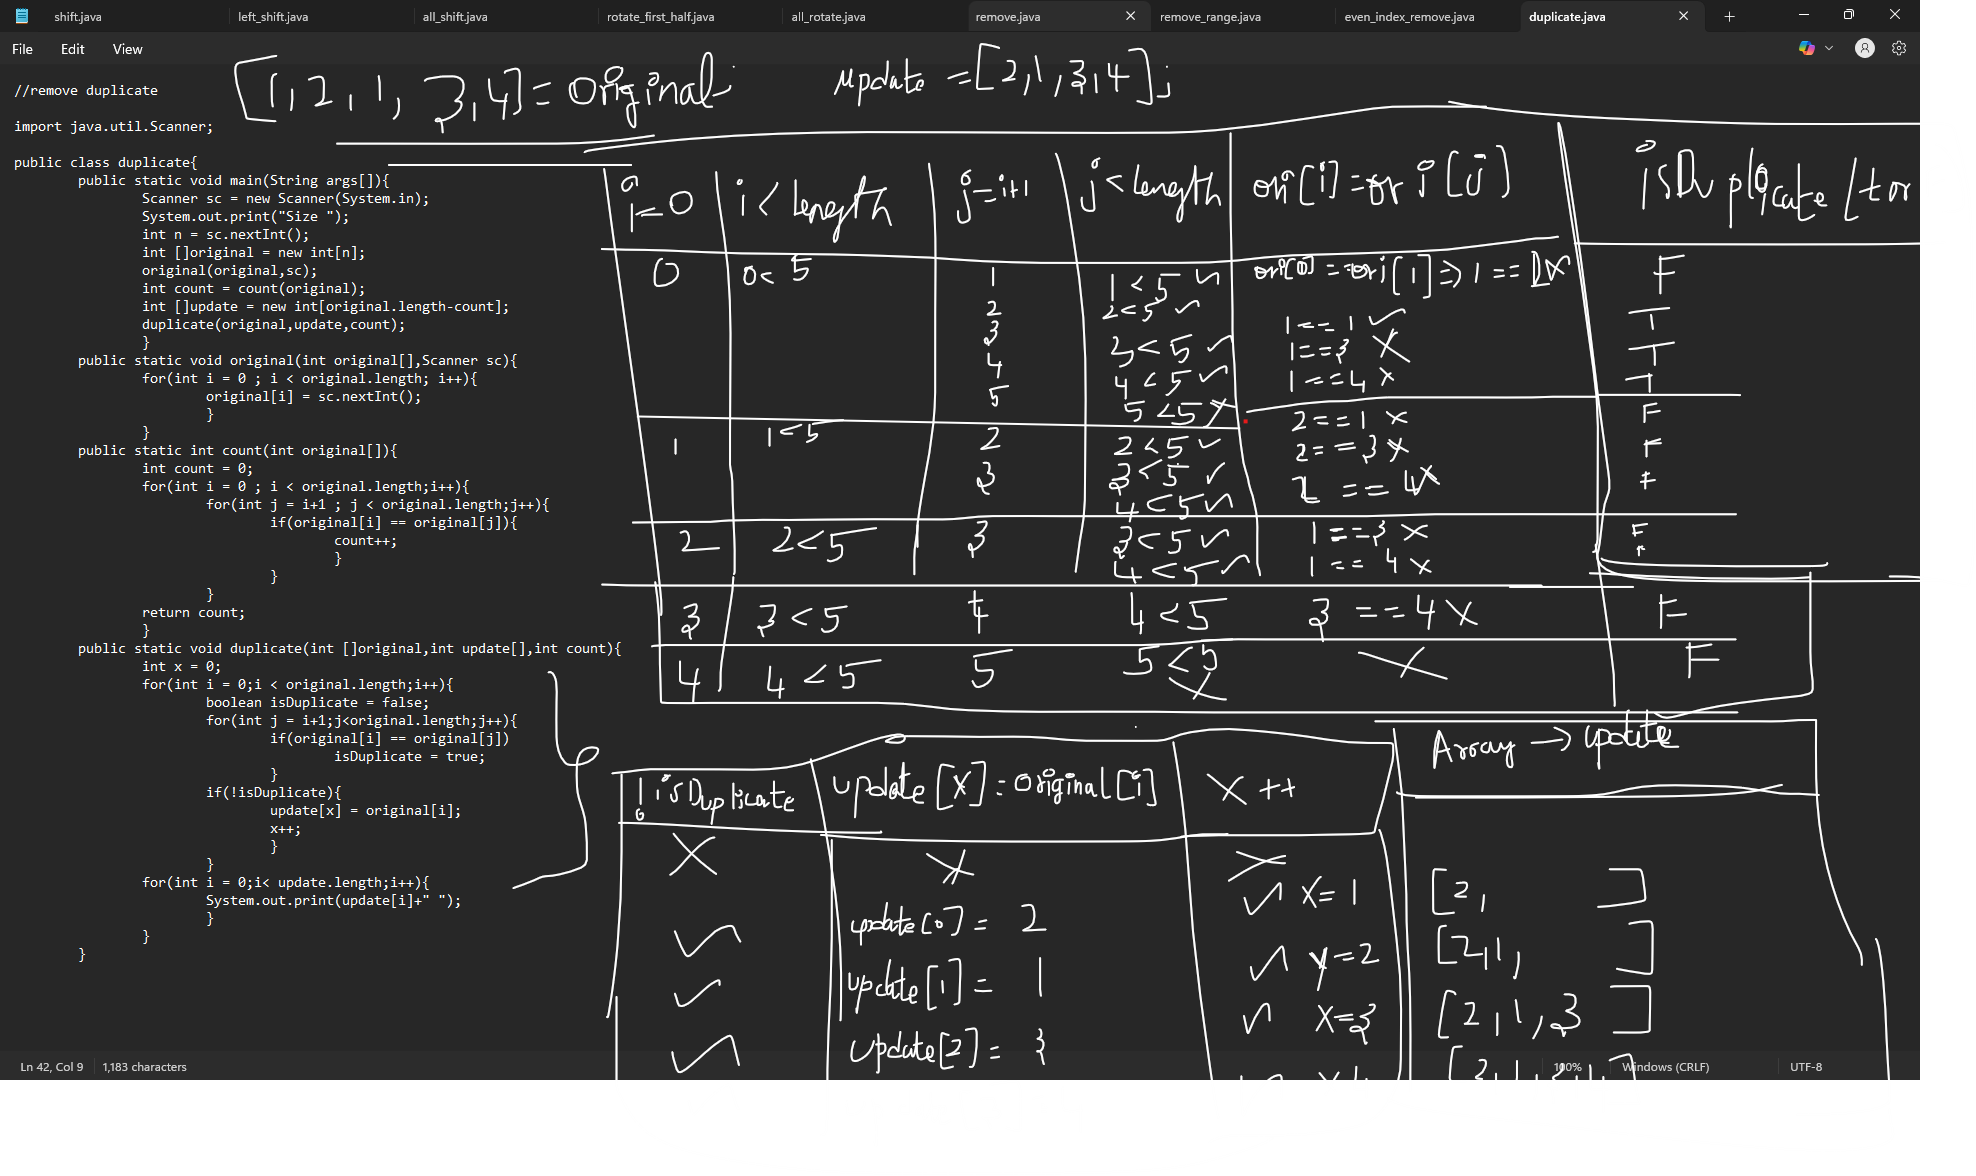 shift.java left_shift.java all_shift.java rotate_first_half.java all_rotate.java remove.java remove_range.java even_index_remove.java duplicate.java
File Edit View
[1,2,1,3,4]=Original; update =[2,1,3,4];
//remove duplicate
import java.util.Scanner;
public class duplicate{
public static void main(String args[]){
Scanner sc = new Scanner(System.in);
System.out.print("Size ");
int n = sc.nextInt();
int []original = new int[n];
original(original,sc);
int count = count(original);
int []update = new int[original.length-count];
duplicate(original,update,count);
}
public static void original(int original[],Scanner sc){
for(int i = 0 ; i < original.length; i++){
original[i] = sc.nextInt();
}
}
public static int count(int original[]){
int count = 0;
for(int i = 0 ; i < original.length;i++){
for(int j = i+1 ; j < original.length;j++){
if(original[i] == original[j]){
count++;
}
}
}
return count;
}
public static void duplicate(int []original,int update[],int count){
int x = 0;
for(int i = 0;i < original.length;i++){
boolean isDuplicate = false;
for(int j = i+1;j<original.length;j++){
if(original[i] == original[j])
isDuplicate = true;
}
if(!isDuplicate){
update[x] = original[i];
x++;
}
}
for(int i = 0;i< update.length;i++){
System.out.print(update[i]+" ");
}
}
}
i=0 i< length j=i+1 j<length ori[i]=ori[j] isDuplicate
0 0< 5 1 1<5 ori[0]==ori[1]=> 1== F
2 2<5 1==1 T
3 3<5 1==3 X T
4 4<5 1==4 X T
5 5<5 X
1 1<5 2 2<5 2==1 X F
3 3<5 2==3 X F
4<5 2==4X F
2 2<5 3 3<5 1==3 X F
4<5 1==4 X F
3 3<5 4 4<5 3==4 X F
4 4<5 5 5<5 X X F
!isDuplicate update[X]=original[i] X++ Array → update
X X X
update[0]= 2 X=1 [2, ]
update[1]= 1 X=2 [2,1, ]
update[2]= 3 X=3 [2,1,3 ]
Ln 42, Col 9 1,183 characters 100% Windows (CRLF) UTF-8